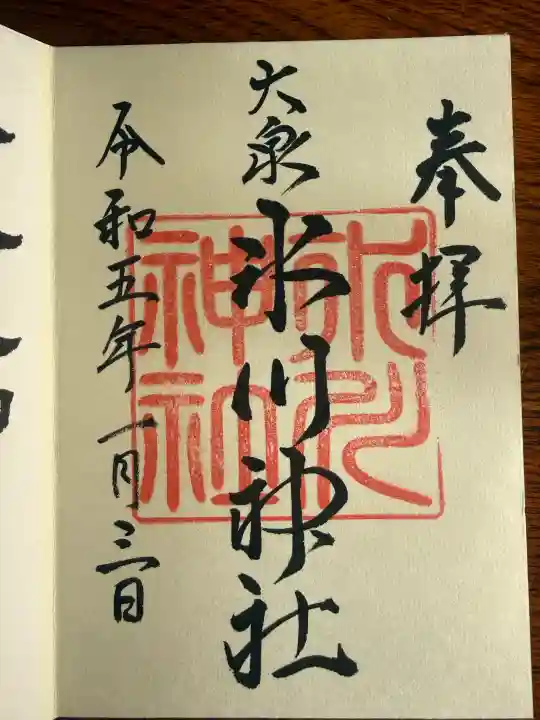 奉拝
大泉
氷川神社
令和五年一月三日
氷川
神社